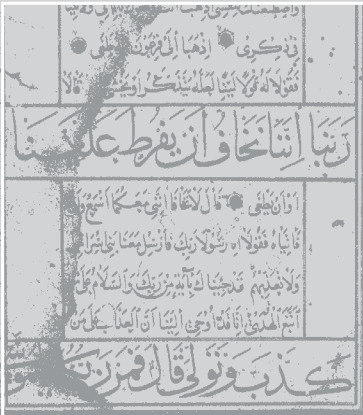 واصطنعتك لنفسي اذهب
في ذكري اذهبا إلى فرعون طغى
فقولا له قولا لينا لعله يتذكر أو يخشى قالا
ربنا إننا نخاف أن يفرط علينا
أو أن يطغى قال لا تخافا إنني معكما أسمع
فأتياه فقولا إنا رسولا ربك فأرسل معنا بني إسرا
ولا تعذبهم قد جئناك بآية من ربك والسلام على
اتبع الهدى إنا قد أوحي إلينا أن العذاب على من
كذب وتولى قال فمن